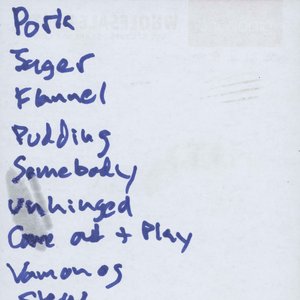 Pork
Jager
Flannel
Pudding
Somebody
unhinged
Come out + Play
Vamonos